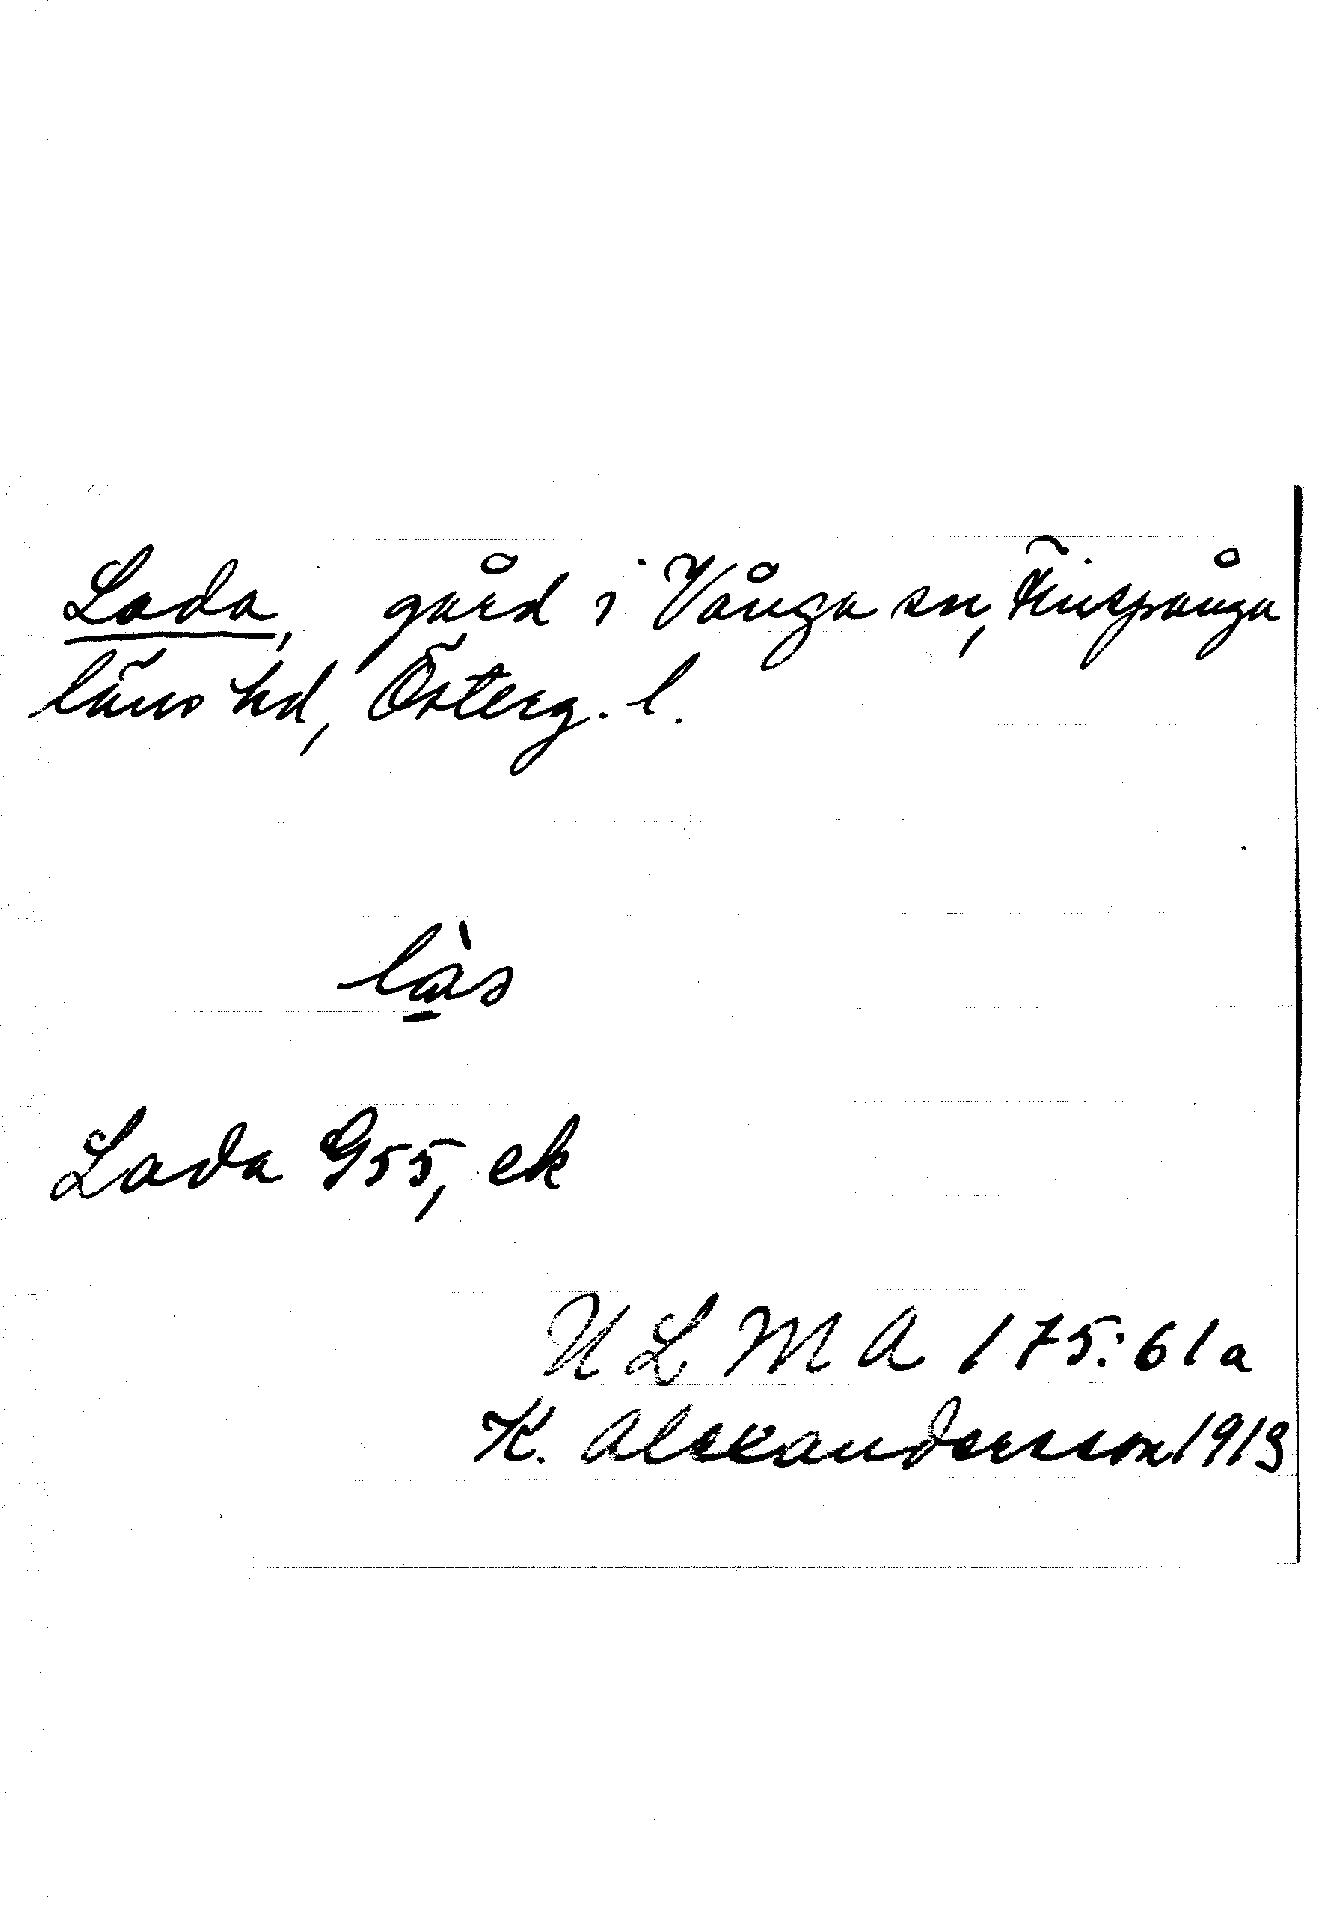 Lada, gård i Vånga sn, Finspånga
läns hd, Österg. l.
Lada G55, ek
U L M A 175:61a
K. Alexandersson 1913